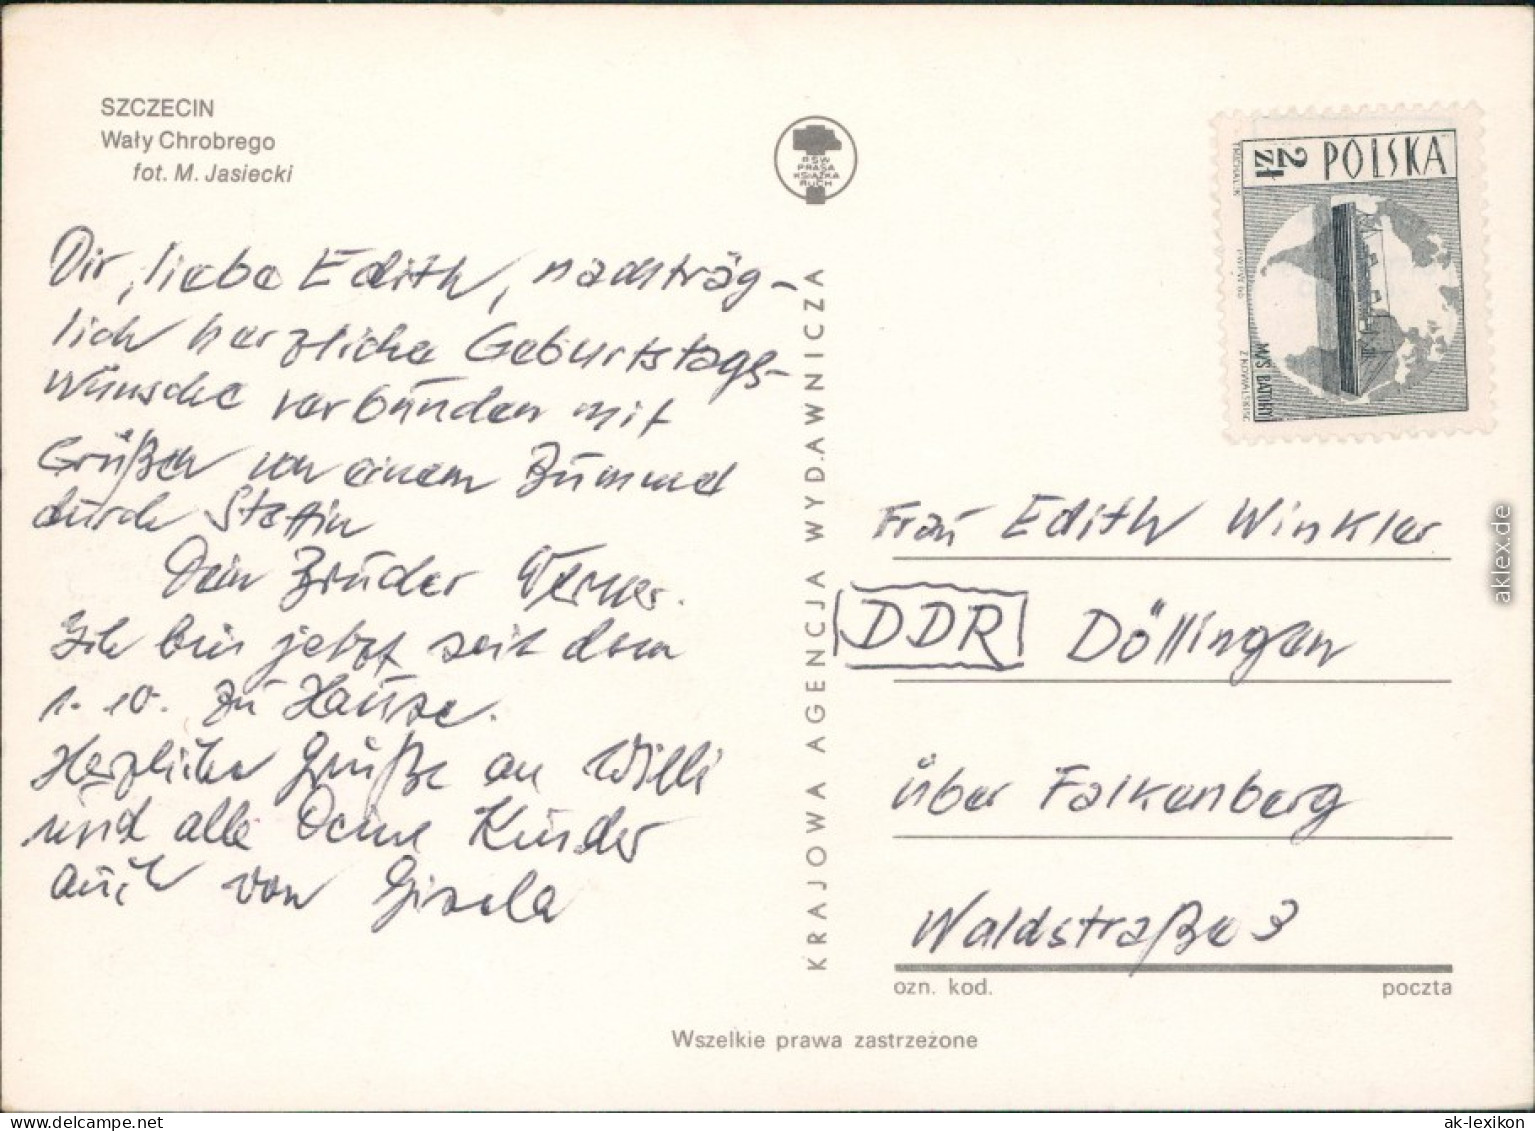 SZCZECIN
Wały Chrobrego
fot. M. Jasiecki
RSW
PRASA
KSIĄŻKA
RUCH
2 zł POLSKA
M/S BATORY
Dir, liebe Edith, nachträg-
lich herzliche Geburtstags-
wünsche verbunden mit
Grüßen von einem Bummel
durch Stettin
Dein Bruder Werner.
Ich bin jetzt seit dem
1. 10. zu Hause.
Herzliche Grüße an Willi
und alle Deine Kinder
auch von Gisela
KRAJOWA AGENCJA WYDAWNICZA
Frau Edith Winkler
DDR Döllingen
über Falkenberg
Waldstraße 3
ozn. kod. poczta
Wszelkie prawa zastrzeżone
aklex.de
ak-lexikon